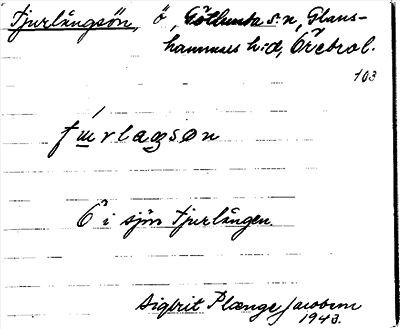 Tjurlångsön, ö, Götlunda s:n, Glans-
hammars h:d, Örebro l.
103
Ö i sjön Tjurlången.
Sigbrit Plænge Jacobson
1943.